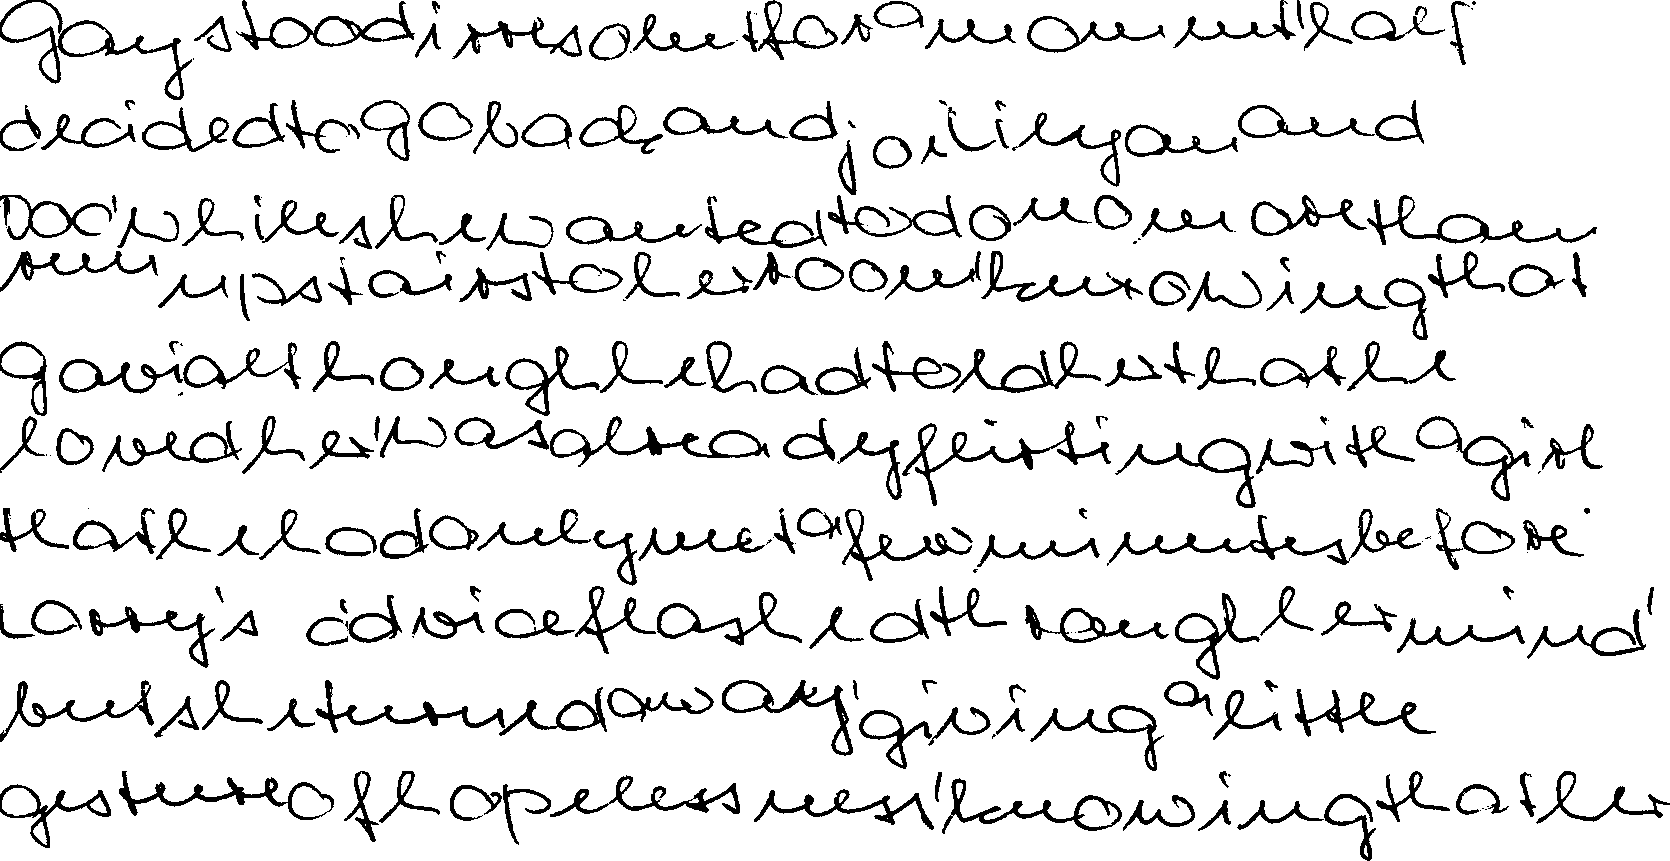 Gay stood irresolut for a moment, half
decided to go back and joi Lilyan and
Doc, while she wanted to do no more than
run upstairs to her room, knowing that
Gavi although he had told her that he
loved her, was already flirting with a girl
that he had only met a few minutes before.
Larry's advice flashed through her mind,
but she turned away, giving a little
gesture of hopelessness, knowing that her